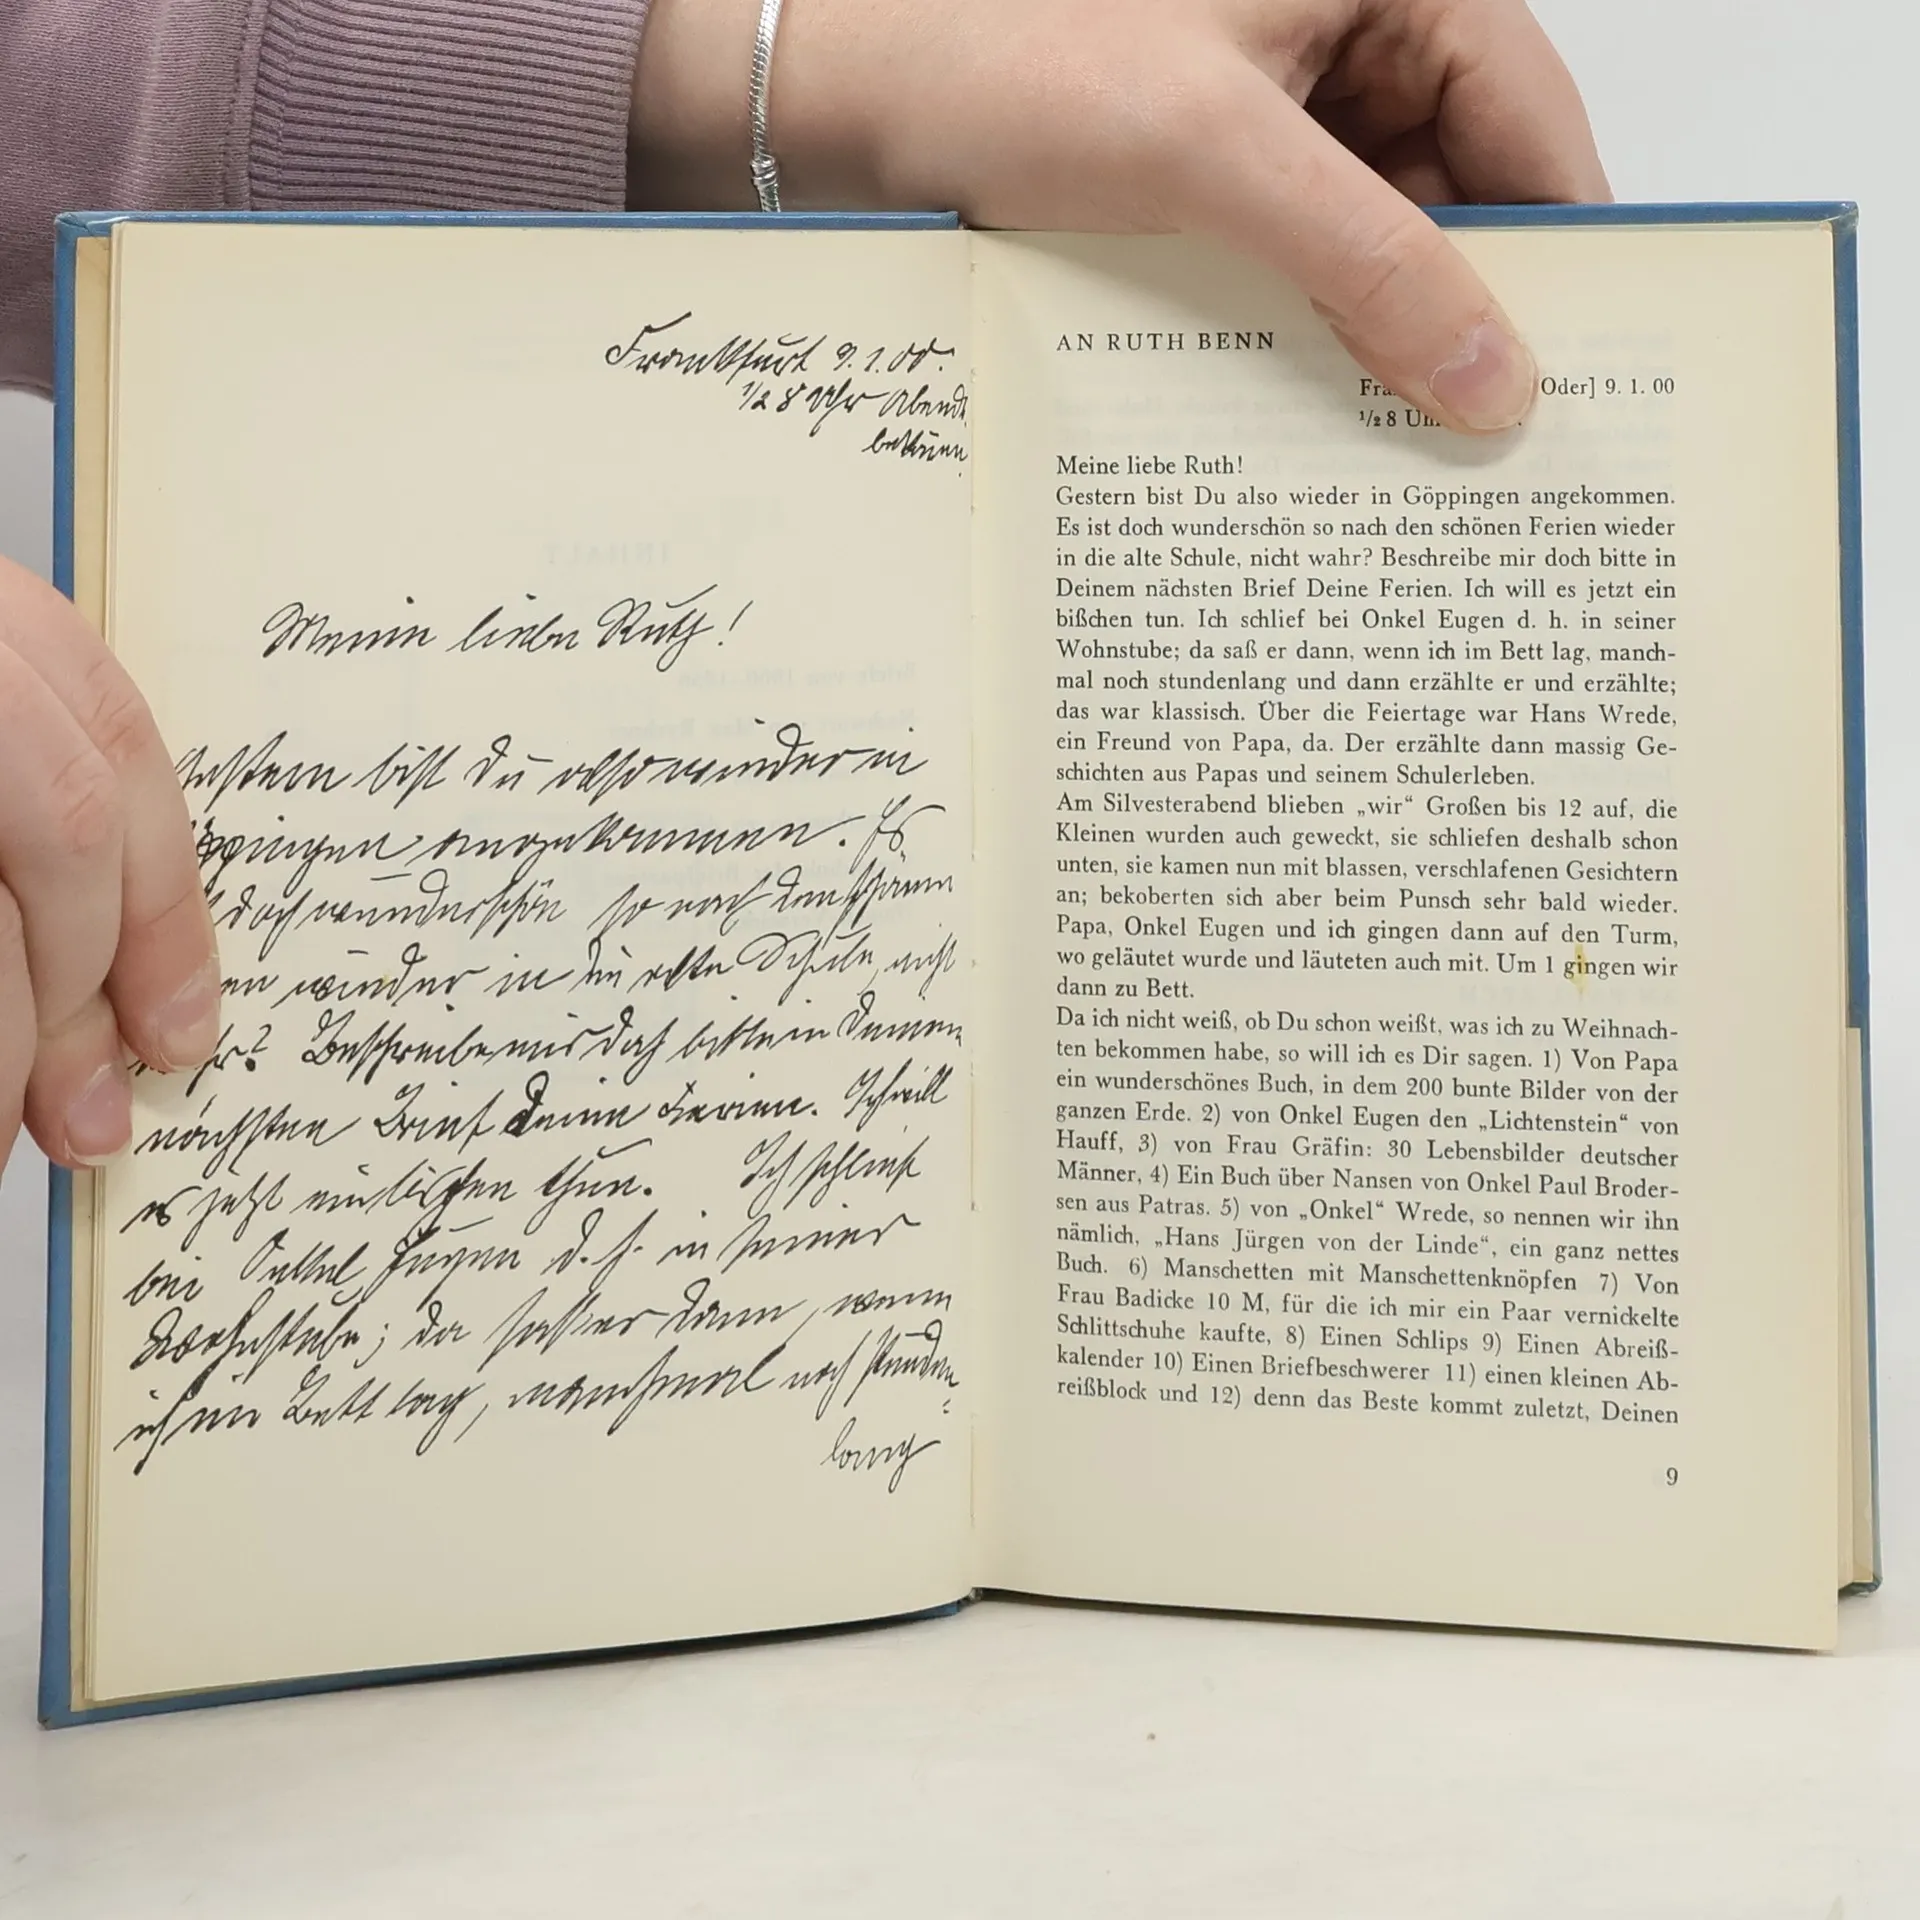 Frankfurt 9.1.00.
1/2 8 Uhr Abends
bekommen.
Meine liebe Ruth!
Gestern bist Du also wieder in
angekommen. Es
doch wunderschön so nach den schönen
wieder in die alte Schule, nicht
Beschreibe mir doch bitte in Deinem
nächsten Brief Deine Ferien. Ich will
es jetzt ein bißchen thun. Ich schlief
bei Onkel Eugen d. h. in seiner
Wohnstube; da saß er dann, wenn
ich im Bett lag, manchmal noch stunden=
lang
AN RUTH BENN
Oder] 9. 1. 00
½ 8
Meine liebe Ruth!
Gestern bist Du also wieder in Göppingen angekommen.
Es ist doch wunderschön so nach den schönen Ferien wieder
in die alte Schule, nicht wahr? Beschreibe mir doch bitte in
Deinem nächsten Brief Deine Ferien. Ich will es jetzt ein
bißchen tun. Ich schlief bei Onkel Eugen d. h. in seiner
Wohnstube; da saß er dann, wenn ich im Bett lag, manch-
mal noch stundenlang und dann erzählte er und erzählte;
das war klassisch. Über die Feiertage war Hans Wrede,
ein Freund von Papa, da. Der erzählte dann massig Ge-
schichten aus Papas und seinem Schulerleben.
Am Silvesterabend blieben „wir“ Großen bis 12 auf, die
Kleinen wurden auch geweckt, sie schliefen deshalb schon
unten, sie kamen nun mit blassen, verschlafenen Gesichtern
an; bekoberten sich aber beim Punsch sehr bald wieder.
Papa, Onkel Eugen und ich gingen dann auf den Turm,
wo geläutet wurde und läuteten auch mit. Um 1 gingen wir
dann zu Bett.
Da ich nicht weiß, ob Du schon weißt, was ich zu Weihnach-
ten bekommen habe, so will ich es Dir sagen. 1) Von Papa
ein wunderschönes Buch, in dem 200 bunte Bilder von der
ganzen Erde. 2) von Onkel Eugen den „Lichtenstein“ von
Hauff, 3) von Frau Gräfin: 30 Lebensbilder deutscher
Männer, 4) Ein Buch über Nansen von Onkel Paul Broder-
sen aus Patras. 5) von „Onkel“ Wrede, so nennen wir ihn
nämlich, „Hans Jürgen von der Linde“, ein ganz nettes
Buch. 6) Manschetten mit Manschettenknöpfen 7) Von
Frau Badicke 10 M, für die ich mir ein Paar vernickelte
Schlittschuhe kaufte, 8) Einen Schlips 9) Einen Abreiß-
kalender 10) Einen Briefbeschwerer 11) einen kleinen Ab-
reißblock und 12) denn das Beste kommt zuletzt, Deinen
9